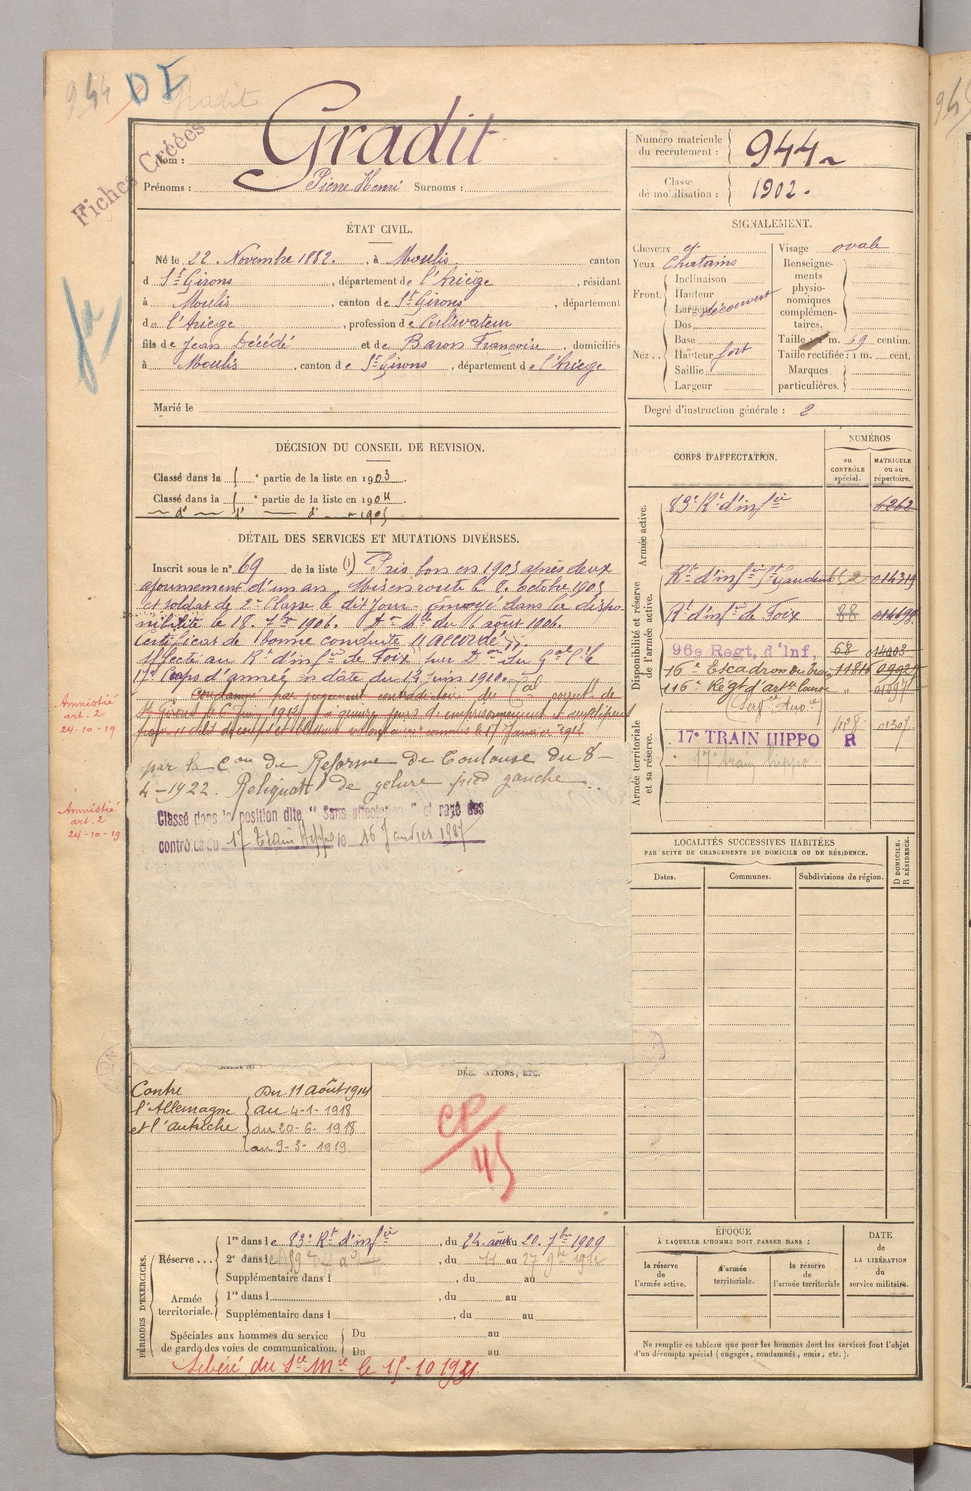 944 DI Gradit
Fiches Créées
Nom : Gradit
Prénoms : Pierre Henri Surnoms :
Numéro matricule du recrutement : 944
Classe de mobilisation : 1902.
ÉTAT CIVIL.
Né le 22 Novembre 1882, à Moulis canton
d St Girons, département de l'Ariège, résidant
à Moulis, canton de St Girons, département
de l'Ariège, profession de Cultivateur
fils de Jean décédé et de Baron Françoise, domiciliés
à Moulis, canton de St Girons, département de l'Ariège
Marié le
SIGNALEMENT.
Cheveux et
Yeux Chatains
Front. Inclinaison
Hauteur
Largeur découvert
Nez... Dos
Base
Hauteur fort
Saillie
Largeur
Visage ovale
Renseignements physionomiques complémentaires.
Taille : 1 m. 59 centim.
Taille rectifiée : 1 m. cent.
Marques particulières.
Degré d'instruction générale : 2
DÉCISION DU CONSEIL DE REVISION.
Classé dans la partie de la liste en 1903
Classé dans la partie de la liste en 1904
d° 1e d° 1905
DÉTAIL DES SERVICES ET MUTATIONS DIVERSES.
Inscrit sous le n° 69 de la liste (1) Pris bon en 1905 après deux
ajournement d'un an. Mis en route le 8 octobre 1905
et soldat de 2e Classe le dit jour. Envoyé dans la dispo-
nibilité le 18. 7bre 1906. du 16 aout 1906.
Certificat de bonne conduite "accordé".
Affecté au Rt d'infie de Foix sur du Gal Ct le
17e Corps d'armée en date du 13 juin 1910.
Condamné par jugement contradictoire du correctl de
St Girons à quinze jours d'emprisonnement
par la Con de Réforme de Toulouse du 8-
4-1922. Reliquat de gelure pied gauche
Classé dans la position dite "Sans affectation" et rayé des
contrôles du 17 Train hippo le 16 janvier 1927
Amnistié
art. 2
24-10-19
Amnistié
art. 2
24-10-19
CORPS D'AFFECTATION.
NUMÉROS
au CONTRÔLE spécial.
MATRICULE ou au répertoire.
Armée active.
83e Rt d'infie 6262
Disponibilité et réserve de l'armée active.
Rt d'infie St Gaudens 014319
Rt d'infie de Foix 88
96e Regt, d'Inf, 68
16e Escadron du Train
116e Regt d'artie lourde
Armée territoriale et sa réserve.
17e TRAIN HIPPO R 01307
17e train hippo
LOCALITÉS SUCCESSIVES HABITÉES
PAR SUITE DE CHANGEMENTS DE DOMICILE OU DE RÉSIDENCE.
Dates. Communes. Subdivisions de région.
D DOMICILE. R RÉSIDENCE.
Contre l'Allemagne et l'Autriche
Du 11 Août 1914
au 4-1-1918
du 20-6-1918
au 9-3-1919.
CP/45
PÉRIODES D'EXERCICES.
Réserve... 1re dans le 83e Rt d'infie, du 24 août au 20. 7bre 1909
2e dans le, du 11 au 27 9bre
Supplémentaire dans l, du au
Armée territoriale. 1re dans l, du au
Supplémentaire dans l, du au
Spéciales aux hommes du service de garde des voies de communication. Du au
Du au
Libéré du Sce Mre le 15-10-1931.
ÉPOQUE
À LAQUELLE L'HOMME DOIT PASSER DANS :
la réserve de l'armée active.
l'armée territoriale.
la réserve de l'armée territoriale
DATE DE LA LIBÉRATION du service militaire.
Ne remplir ce tableau que pour les hommes dont les services font l'objet
d'un décompte spécial (engagés, condamnés, omis, etc.).